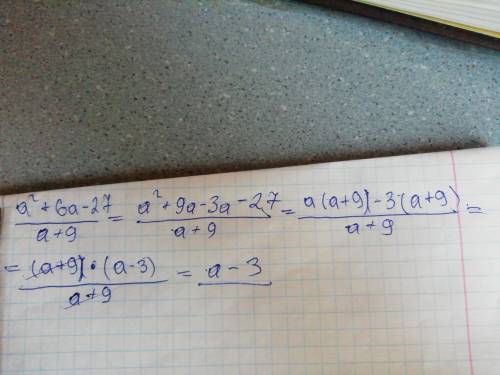 (a² + 6a - 27)/(a + 9) = (a² + 9a - 3a - 27)/(a + 9) = (a(a+9) - 3(a+9))/(a + 9) =
= ((a+9)·(a-3))/(a+9) = a - 3